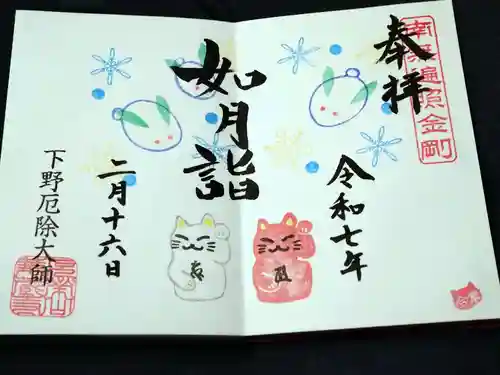 奉拝
南無遍照金剛
令和七年
如月詣
二月十六日
下野厄除大師